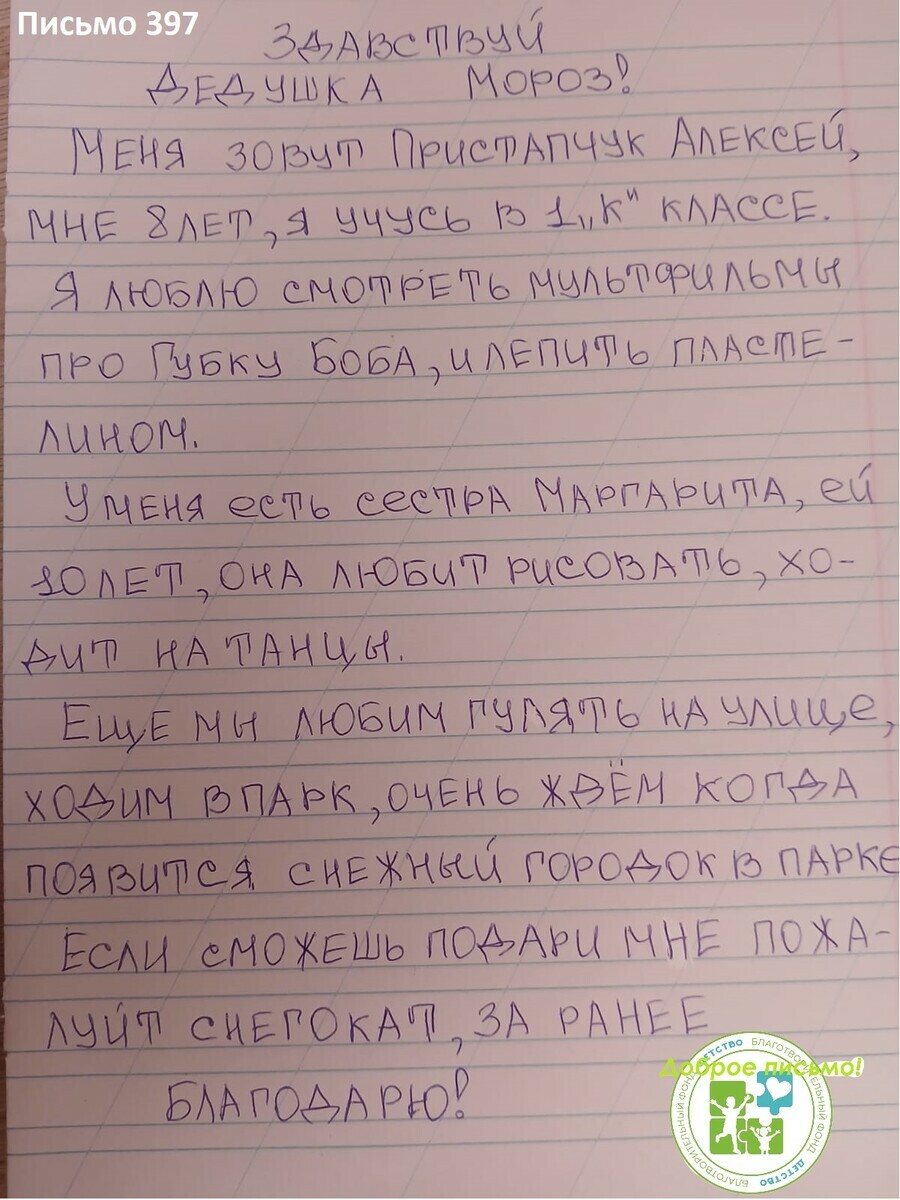 Письмо 397
ЗДАВСТВУЙ
ДЕДУШКА МОРОЗ!
МЕНЯ ЗОВУТ ПРИСТАПЧУК АЛЕКСЕЙ,
МНЕ 8 ЛЕТ, Я УЧУСЬ В 1 „К" КЛАССЕ.
Я ЛЮБЛЮ СМОТРЕТЬ МУЛЬТФИЛЬМЫ
ПРО ГУБКУ БОБА, И ЛЕПИТЬ ПЛАСТЕ-
ЛИНОМ.
У МЕНЯ ЕСТЬ СЕСТРА МАРГАРИТА, ЕЙ
10 ЛЕТ, ОНА ЛЮБИТ РИСОВАТЬ, ХО-
ДИТ НА ТАНЦЫ.
ЕЩЕ МЫ ЛЮБИМ ГУЛЯТЬ НА УЛИЦЕ,
ХОДИМ В ПАРК, ОЧЕНЬ ЖДЁМ КОГДА
ПОЯВИТСЯ СНЕЖНЫЙ ГОРОДОК В ПАРКЕ
ЕСЛИ СМОЖЕШЬ ПОДАРИ МНЕ ПОЖА-
ЛУЙТ СНЕГОКАТ, ЗА РАНЕЕ
БЛАГОДАРЮ!
Доброе письмо!
БЛАГОТВОРИТЕЛЬНЫЙ ФОНД ДЕТСТВО БЛАГОТВОРИТЕЛЬНЫЙ ФОНД ДЕТСТВО